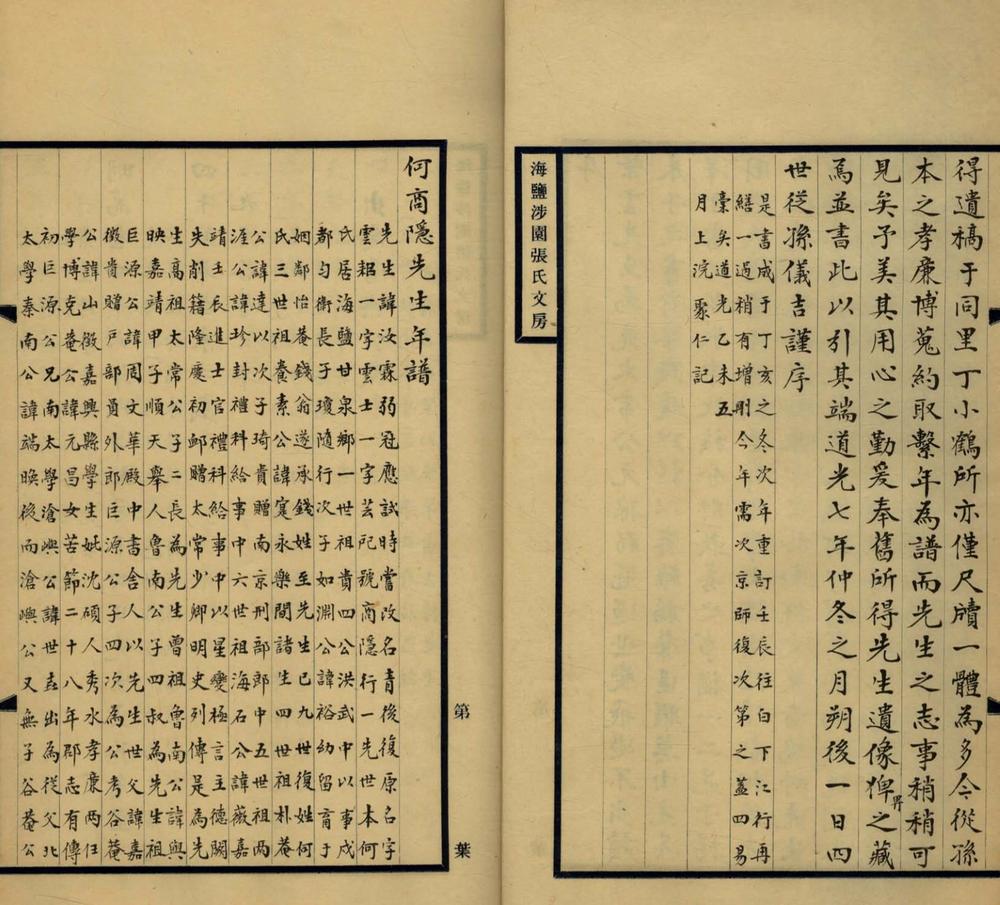 得遺稿于同里丁小鶴所亦僅尺牘一體為多今從孫
本之孝廉博蒐約取繫年為譜而先生之志事稍稍可
見矣予美其用心之勤爰奉舊所得先生遺像俾畀之藏
焉並書此以引其端道光七年仲冬之月朔後一日四
世從孫儀吉謹序
是書成于丁亥之冬次年重訂壬辰往白下江行再
繕一過稍有增刪今年需次京師復次第之蓋四易
稾矣道光乙未五
月上浣聚仁記
海鹽涉園張氏文房
何商隱先生年譜
先生諱汝霖弱冠應試時嘗改名青後復原名字
雲耜一字雲士一字芸𨚗號商隱行一先世本何
氏居海鹽甘泉鄉一世祖貴四公洪武中以事戍
都勻衞長子瓊隨行次子如淵公諱裕幼留育于
姻鄰怡菴錢翁遂承錢姓至先生已九世復姓何
氏三世祖養素公諱寔永樂間諸生四世祖朴菴
公諱達以次子琦貴贈南京刑部郎中五世祖兩
涯公諱珍封禮科給事中六世祖海石公諱薇嘉
靖壬辰進士官禮科給事中以星變極言主德闕
失削籍隆慶初卹贈太常少卿明史列傳是為先
生高祖太常公子二長為先生曾祖魯南公諱與
映嘉靖甲子順天舉人魯南公子四叔為先生祖
巨源公諱周文華殿中書舍人以先生世父諱嘉
徵貴贈戶部員外郎巨源公子四次為公考谷菴
公諱山徵嘉興縣學生妣沈碩人秀水孝廉兩任
學博克菴公諱元昌女苦節二十八年郡志有傳
初巨源公兄南太學滄嶼公諱世垚出為從父北
太學秦南公諱端暎後而滄嶼公又無子谷菴公
第
葉